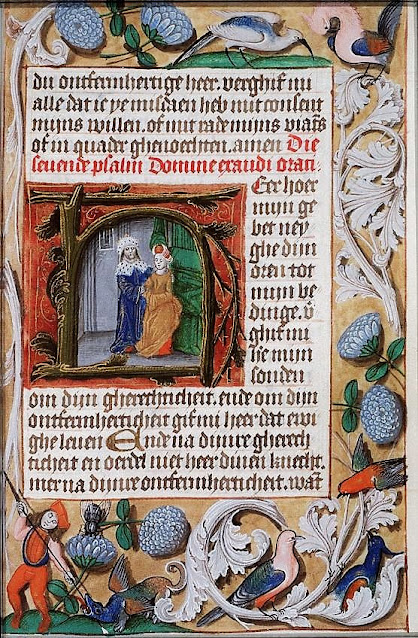 du ontfermhertige heer. verghif mi
alle dat ic ye misdaen heb mit consent
mijns willen. of mit rade mijns viāts
of in quade ghenoechten. amen Die
seuende psalm Domine exaudi orati.
HEere hoer
mijn ge
bet ney
ghe dijn
oren tot
mijn be
dinge. v̄
ghif mi
mijn
sonden
om dijn gherechticheit. ende om dijn
ontfermherticheit gif mi heer dat ewi
ghe leuen Ende na dinre gherech
ticheit en oerdel niet heer dinen knecht.
mer na dijnre ontfermherticheit. wāt